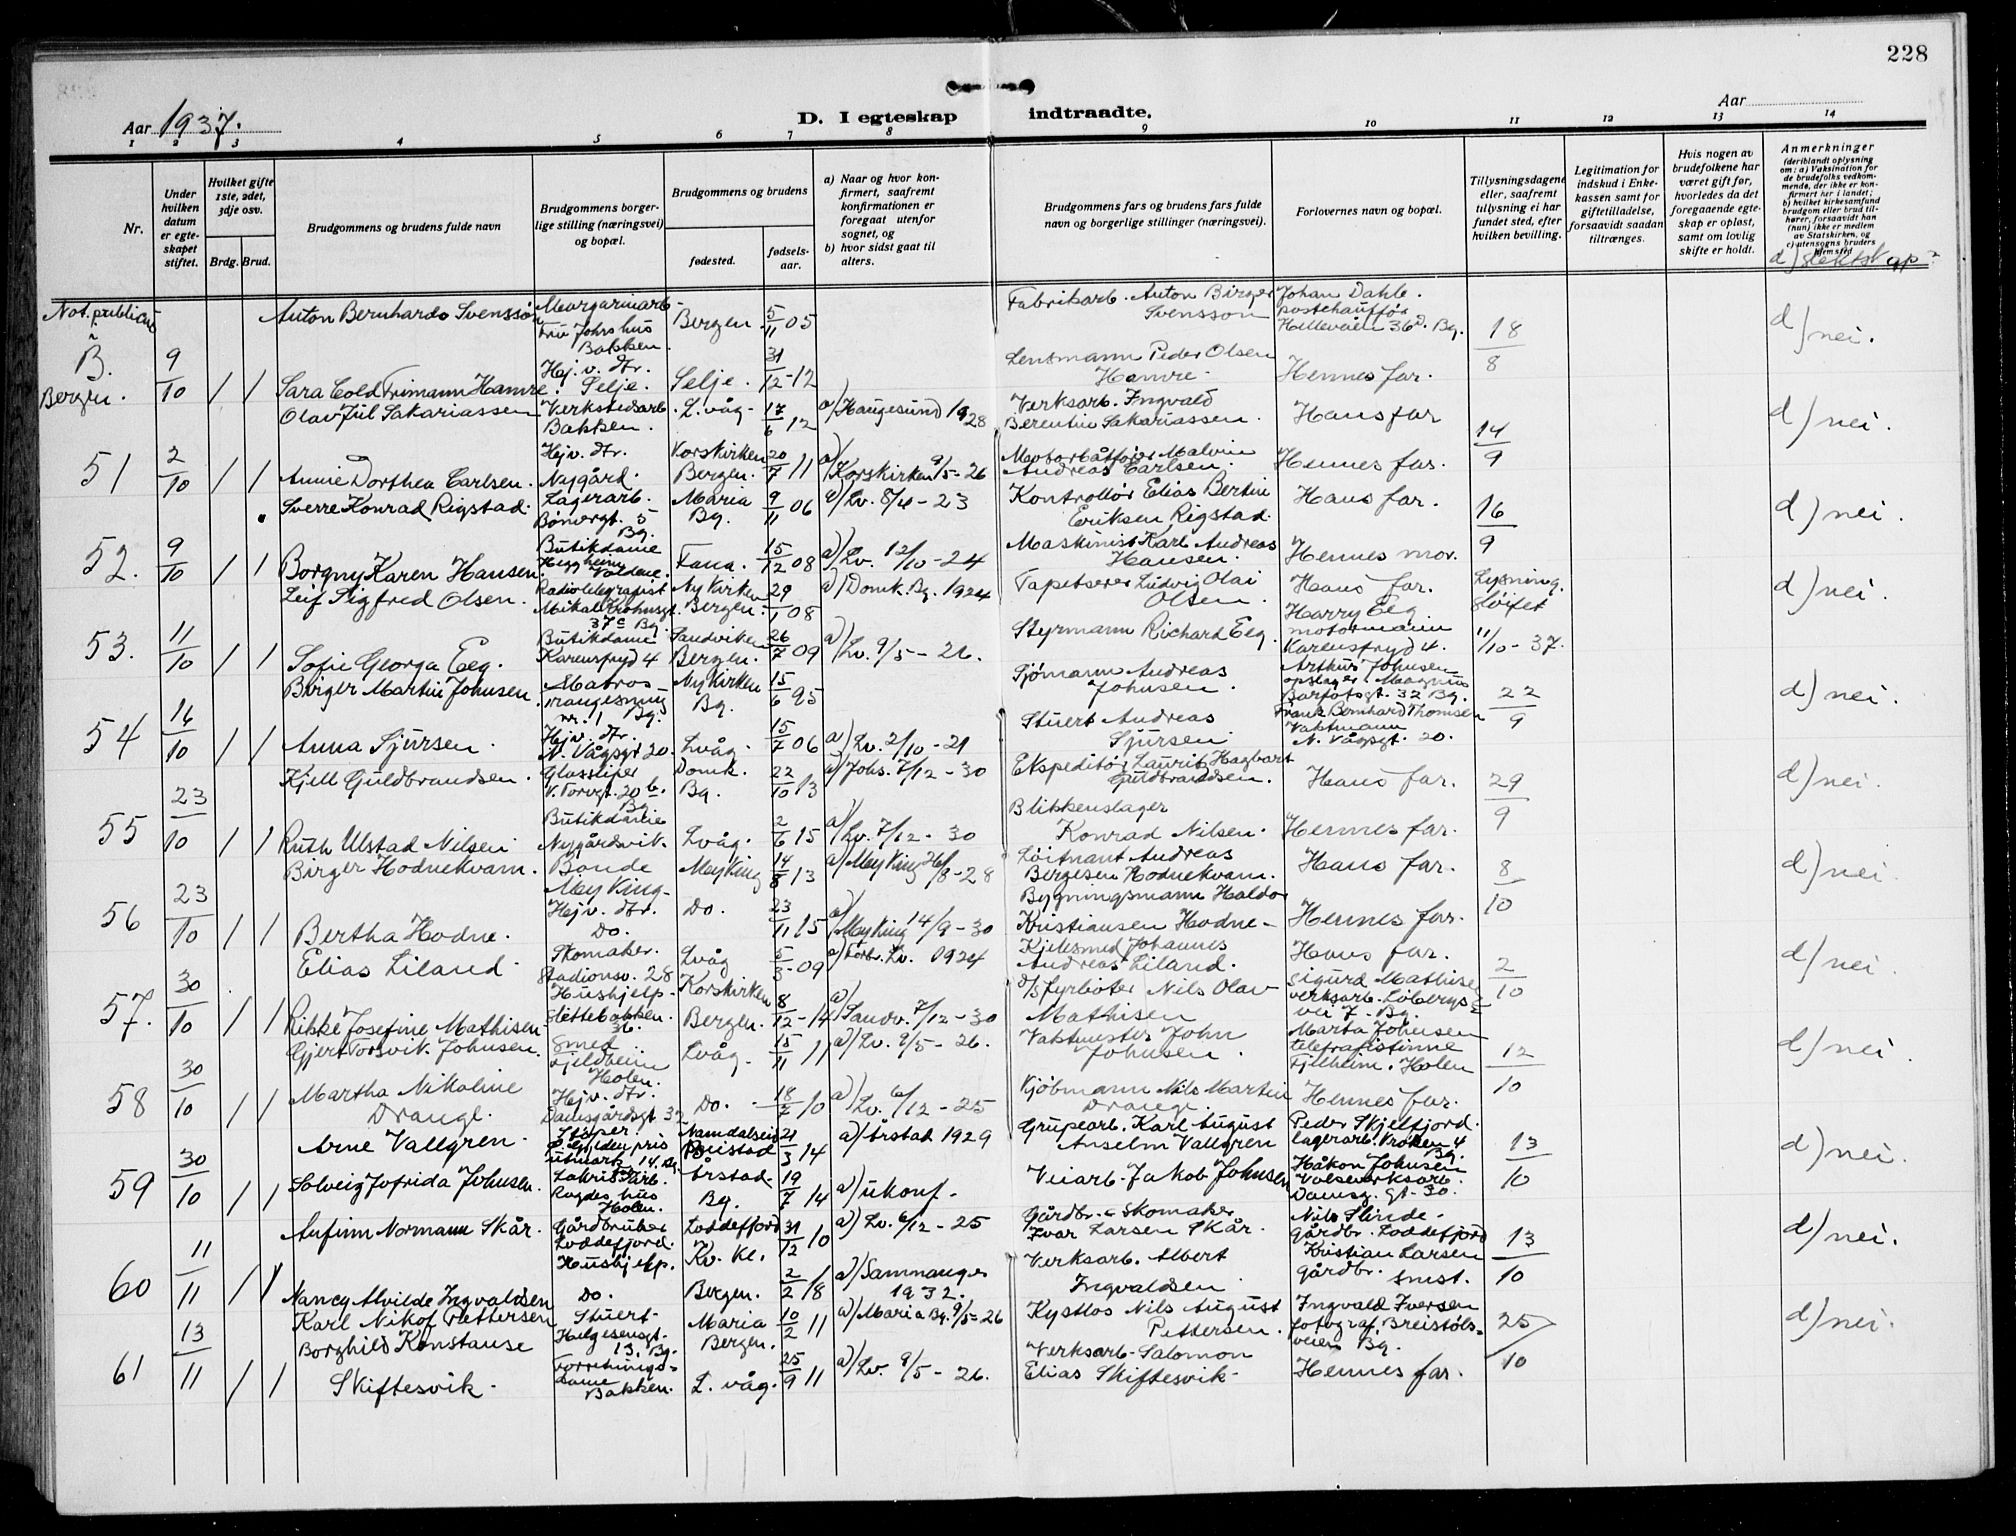 228
Aar 1937.
D. I egteskap indtraadte.
Aar
1 2 3 4 5 6 7 8 9 10 11 12 13 14
Nr.
Under hvilken datum er egteskapet stiftet.
Hvilket gifte 1ste, 2det, 3dje osv.
Brdg. Brud.
Brudgommens og brudens fulde navn
Brudgommens borgerlige stilling (næringsvei) og bopæl.
Brudgommens og brudens
fødested.
fødselsaar.
a) Naar og hvor konfirmert, saafremt konfirmationen er foregaat utenfor sognet, og
b) hvor sidst gaat til alters.
Brudgommens fars og brudens fars fulde navn og borgerlige stillinger (næringsvei).
Forlovernes navn og bopæl.
Tillysningsdagene eller, saafremt tillysning ei har fundet sted, efter hvilken bevilling.
Legitimation for indskud i Enkekassen samt for giftetilladelse, forsaavidt saadan tiltrænges.
Hvis nogen av brudefolkene har været gift før, hvorledes da det foregaaende egteskap er opløst, samt om lovlig skifte er holdt.
Anmerkninger
(deriblandt oplysning om: a) Vaksination for de brudefolks vedkommende, der ikke er konfirmert her i landet; b) hvilket kirkesamfund brudgom eller brud tilhører, forsaavidt han (hun) ikke er medlem av Statskirken, og c) utensogns bruders hjemsted
d) slektskap?
Not. publicus i Bergen.
B. 9/10 1 1
Anton Bernhardo Svensson Margarinarb. Bakken. Bergen. 5/11 05 Fabrikarb. Anton Birger Svensson Johan Dahle. postchauffør Helleveien 36d. Bg. 18/8 d) nei.
Sara Cold Frimann Hamre. Hej. v. dtr. Selje. Selje. 31/12-12 Lensmann Peder Olsen Hamre. Hennes far.
51 2/10 1 1
Olav Jul Sakariassen Verkstedarb. Bakken. L.våg. 17/6 12 a) Haugesund 1928 Verksarb. Ingvald Berentin Sakariassen. Hans far 14/9 d) nei.
Annie Dorthea Carlsen. Hejv. dtr. Nygård. Korskirken Bergen. 20/7 11 a) Korskirken 9/5-26 Motorbåtfører Malvin Andreas Carlsen. Hennes far.
52. 9/10 1 1
Sverre Konrad Rigstad. Lagerarb. Bønesgt. 5 Bg. Maria Bg. 9/11 06 a) Lv. 8/4-23 Kontrollør Elias Bertin Eriksen Rigstad. Hans far. 16/9 d) nei.
Borgny Karen Hansen. Butikdame Heggheim Voldene. Fana. 15/12 08 a) Lv. 12/10-24 Maskinist Karl Andreas Hansen. Hennes mor.
53. 11/10 1 1
Leif Sigfred Olsen. Radiotelegrafist Mikal Krohnsgt. 37c Bg. Ny Kirken Bergen. 29/1 08 a) Domk. Bg. 1924 Tapetserer Ludvig Olai Olsen. Hans far. Lysning sløifet 11/10-37. d) nei.
Sofie Georga Eeg. Butikdame Karensfryd 4 Sandviken Bergen. 26/7 09 a) Lv. 9/5-26. Styrmann Richard Eeg. Harry Eeg motormann Karensfryd 4.
54 16/10 1 1
Birger Martin Johnsen. Matros Trangesmug nr. 1 Bg. Ny Kirken Bg. 15/6 95 Sjømann Andreas Johnsen. Arthur Johnsen opslager Magnus Barfotsgt. 32 Bg. 22/9 d) nei.
Anna Sjursen. Hejv. dtr. N. Vågsgt 20. Lvåg. 15/7 06 a) Lv. 2/10-21 Stuert Andreas Sjursen. Frank Bernhard Thomsen Vaktmann N. Vågsgt. 20.
55 23/10 1 1
Kjell Guldbrandsen. Glassliper V. Torvgt. 20 b. Bg. Domk. Bg. 22/10 13 a) Johs. 7/12-30 Ekspeditør Laurits Hagbart Guldbrandsen. Hans far. 29/9 d) nei.
Ruth Ulstad Nilsen Butikdame Nygårdsvik. Lvåg. 2/6 15 a) Lv. 7/12-30 Blikkenslager Konrad Nilsen. Hennes far.
56 23/10 1 1
Birger Hodnekvam. Bonde Mey King. Mey King 14/8 13 a) Mey King 26/8-28 Løitnant Andreas Bergesen Hodnekvam. Hans far. 8/10 d) nei.
Bertha Hodne. Hejv. dtr. Do. Do. 23/11 15 a) Mey King 14/9-30 Bygningsmann Haldor Kristiansen Hodne. Hennes far.
57. 30/10 1 1
Elias Liland. Skomaker. Stadionsv. 28 Lvåg 5/3-09 a) Forbr. Lv. 1924 Kjelesmed Johannes Andreas Liland. Hans far. 2/10 d) nei.
Rikke Josefine Mathisen Hushjelp. Slettebakken. 36. Korskirken Bergen. 8/12-14 a) Sandv. 7/12-30 d/s fyrbøter Nils Olav Mathisen Sigurd Mathisen verksarb. Løbergsvei 7. Bg.
58 30/10 1 1
Gjert Torsvik Johnsen. Smed Fjeldheim Holen. Lvåg. 15/11 11 a) Lv. 9/5-26. Vaktmester John Johnsen. Marta Johnsen telefonistinne Fjelheim. Holen 12/10 d) nei.
Martha Nikoline Drange. Hejv. dtr. Damsgårdsgt 32 Do. 18/2 10 a) Lv. 6/12-25 Kjøbmann Nils Martin Drange. Hennes far.
59 30/10 1 1
Arne Vallgren. Støper. 14. Bg. Namdalseid Beistad 21/3 14 a) Årstad 1929 Grupearb. Karl August Anselm Vallgren Peder Skjelfjord. lagerarb. Kroken 4 Bg. 13/10 d) nei.
Solveig Jofrida Johnsen. Lakrisarb. Ragdes hus Holen. Årstad Bg. 19/7 14 a) ukonf. Veiarb. Jakob Johnsen Håkon Johnsen Valseverksarb. Damsg. gt. 30.
60 11/11 1 1
Anfinn Normann Skår. Gårdbruker Loddefjord. Loddefjord Kv. Kl. 31/12 10 a) Lv. 6/12-25 Gårdbr. & skomaker Ivar Larsen Skår. Nils Slinde. Gårdbr. Loddefjord 13/10 d) nei.
Nancy Alvilde Ingvaldsen Hushjelp. Do. Bergen. 2/2 18 a) Samnanger 1932. Verksarb. Albert Ingvaldsen Kristian Larsen gårdbr. smst.
61 13/11 1 1
Karl Nikof Pettersen Stuert. Helgesensgt. 13. Bg. Maria Bergen. 10/2 11 a) Maria Bg. 9/5-26 Kystlos Nils August Pettersen. Ingvald Iversen fotograf. Breistølsveien Bg. 25/10 d) nei.
Borghild Konstanse Skiftesvik. Forretningsdame Bakken. L. våg. 25/9 11 a) Lv. 9/5-26. Verksarb. Salomon Elias Skiftesvik. Hennes far.